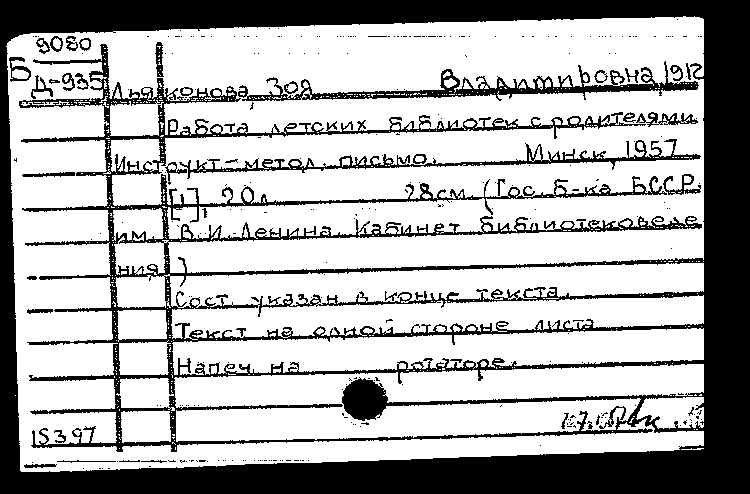 9080
Б
Д-935
Дьяконова, Зоя Владимировна, 1912
Работа детских библиотек с родителями.
Инструкт-метод. письмо. Минск, 1957
[1], 20л 28см. (Гос. б-ка БССР.
им. В.И. Ленина. Кабинет библиотековеде
ния)
Сост. указан в конце текста.
Текст на одной стороне листа
Напеч. на ротаторе.
15397